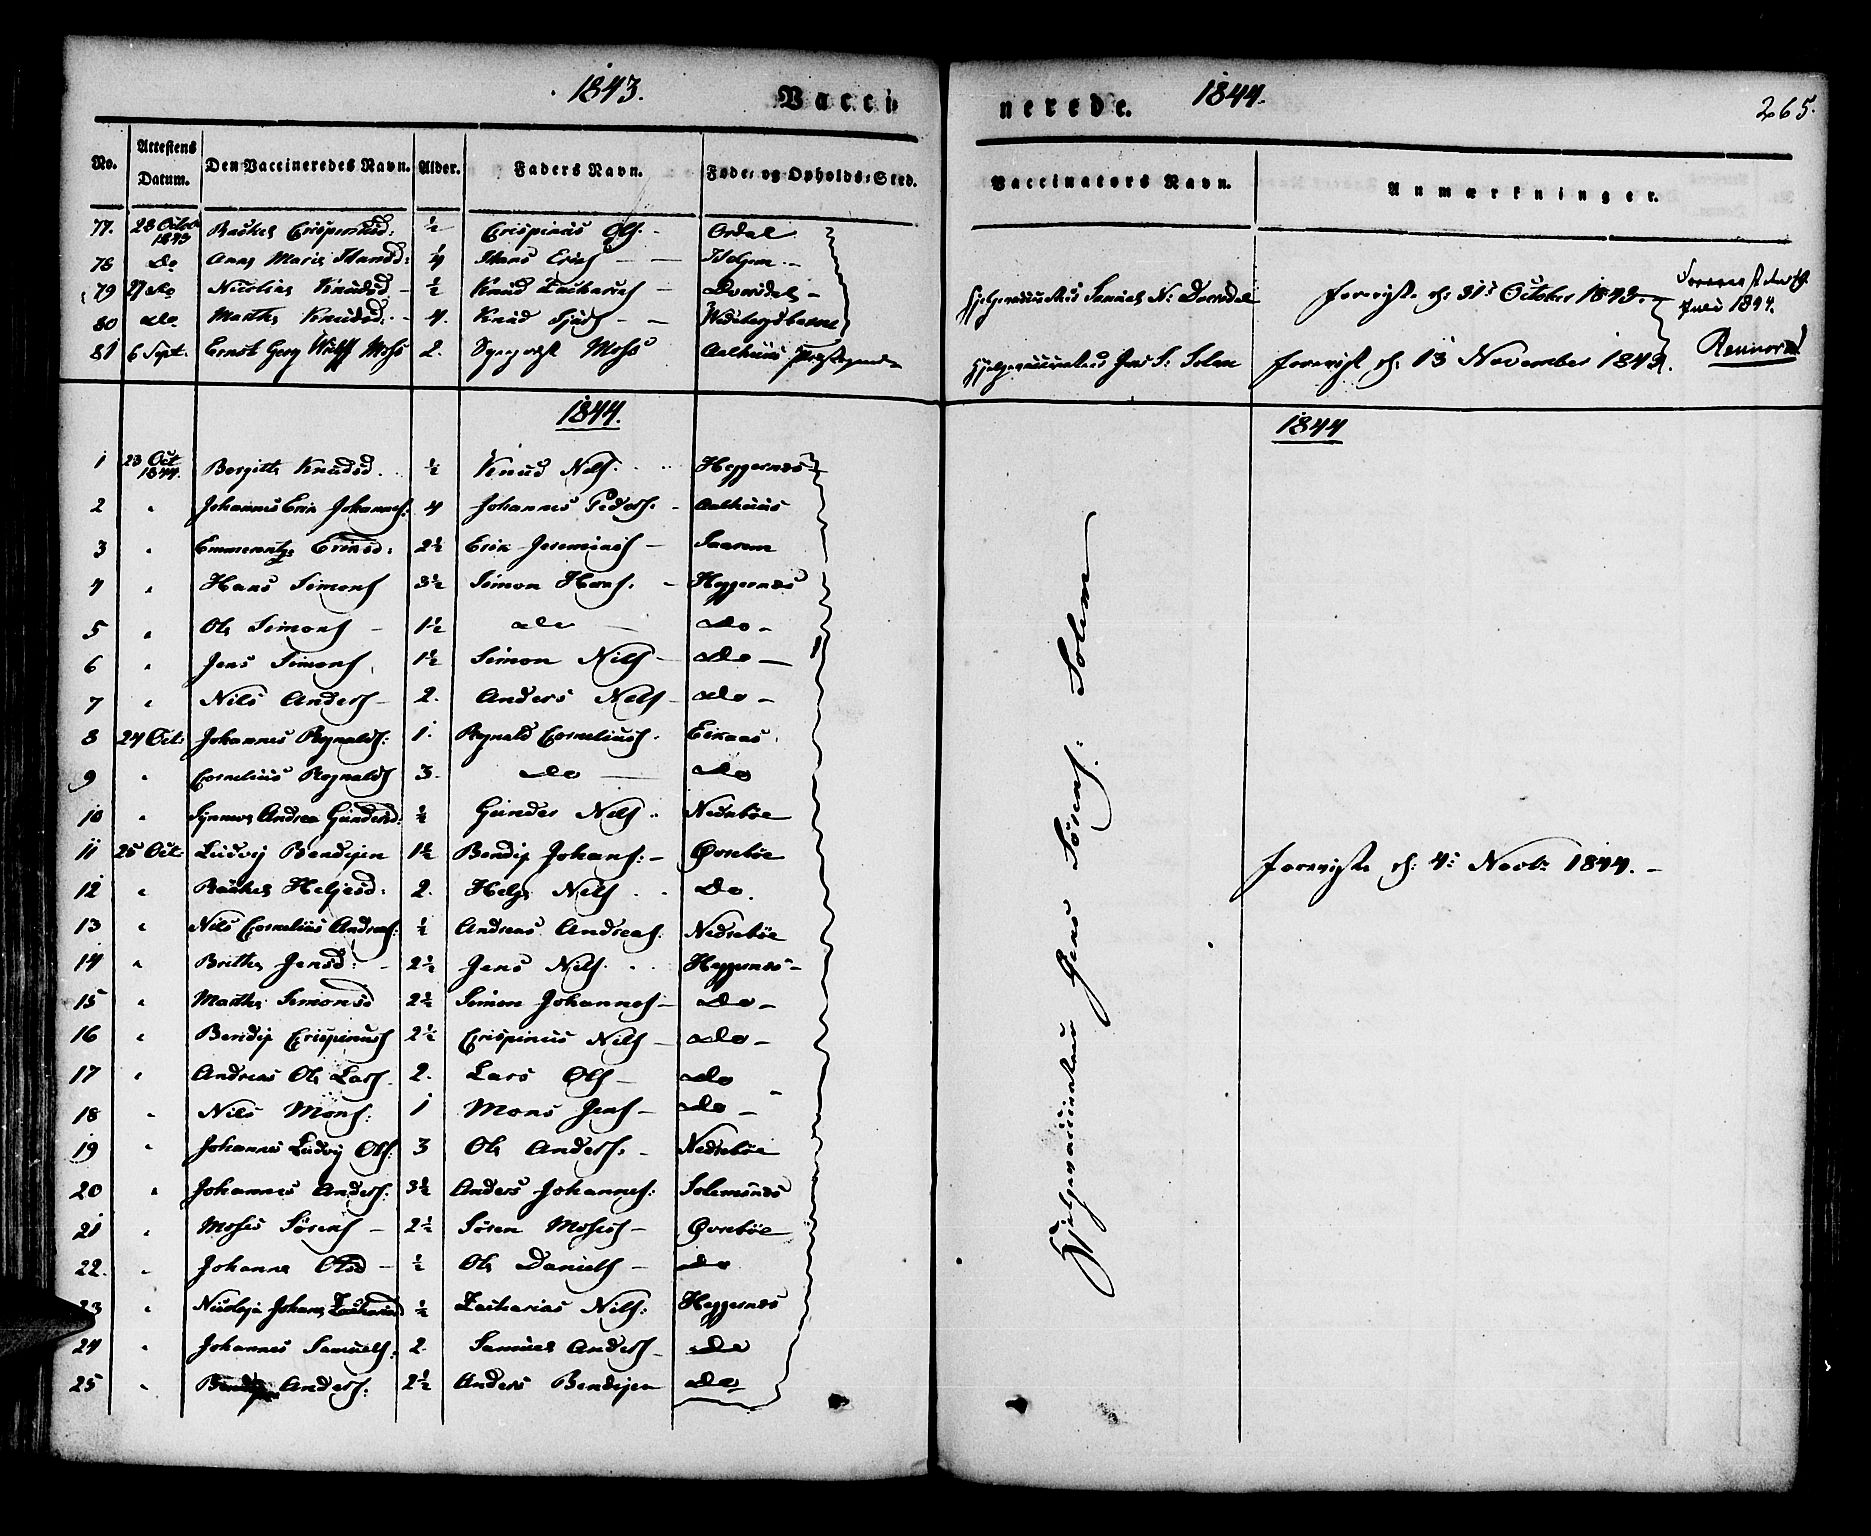 1843. Vacci nerede. 1844. 265.
No. Attestens Datum. Den Vaccineredes Navn. Alder. Faders Navn. Føde- og Opholds-Sted. Vaccinators Navn. Anmærkninger.
77. 23 Octbr 1843 Rachel Crispinusd: ½ Crispinus Ols. - Ordal
78 do Anne Marie Hansd: 4 Hans Erics - -
79 27 do Nicoline Knudsd - ½ Knud Zacharies - Dorsdal - Hjelpevaccinateur Samuel N: Dorsdal foreviist d: 31: October 1843.
80 do Marthe Knudsd. - 4. Knud - - Juli 1844.
81 6 Sept. Ernst Georg Wulff Moss 2. Moss Aalhuus Præstegaard Hjelpevaccinateur Jens S: Solem foreviist d: 13 November 1843.
1844. 1844
1 23 Oct 1844. Bergitte Knudsd. ½ Knud Nils. Heggernæs
2 " Johannes Eric Johannes: 4 Johannes Peders. - Aalhuus
3 " Emmerentze Ericsd: 2½ Eric Jeremias -
4 " Hans Simons 3½ Simon Hans. - Heggernæs
5 " Ole Simons - 1½ do do -
6 " Jens Simons 1½ Simon Nils - do -
7 " Nils Anders - 2. Anders Nils - do -
8 24 Oct: Johannes Rognalds: 1. Rognald Cornelius. Eikaas
9 " Cornelius Rognalds 3. do do
10 " Synneve Andrea Gundersd: ½ Gunder Nils Nedrebøe
11 25 Oct: Ludvig Bendixen 1½ Bendix Johans: - Øvrebøe foreviiste d: 4: Novbr 1844. -
12 " Rachel Helgesd: 2. Helge Nils Do.
13 " Nils Cornelius Andreas: ½ Andreas Andreas. Nedrebøe
14 " Brithe Jensd: - 2½ Jens Nils. Heggernæs -
15 " Marthe Simonsd 2½ Simon Johannes - Do -
16 " Bendix Crispinus 2½ Crispinus Nils - do -
17 " Andreas Ole Lars. 2. Lars Ols - do
18 " Nils Mons: 1 Mons Jens - do -
19 " Johannes Ludvig Ols: 3 Ole Anders. - Nedrebøe
20 " Johannes Anders: 3½ Anders Johannes: Solemsnæs
21 " Moses Sørens - 2½ Søren Moses - Øvrebøe
22. " Johanne Olsd - ½ Ole Daniels - do
23 " Nicoleja Johanne Zachariasd ½ Zacharias Nils: Heggernæs
24 " Johannes Samuels: 2. Samuel Anders - do
25 " Bendix Anders: 2½ Anders Bendixen do
Hjelpevaccinateur Jens Sørens: Solem